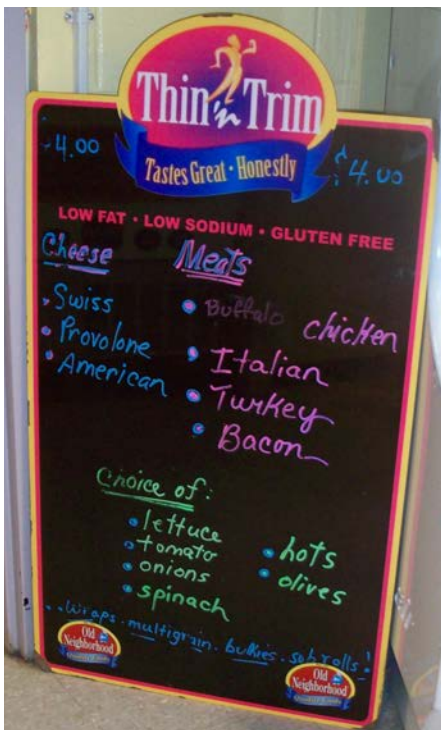 Thin 'n Trim
Tastes Great · Honestly
4.00
$4.00
LOW FAT · LOW SODIUM · GLUTEN FREE
Cheese
• Swiss
• Provolone
• American
Meats
• Buffalo chicken
• Italian
• Turkey
• Bacon
Choice of:
• lettuce
• tomato
• onions
• spinach
• hots
• olives
..wraps. multigrain. bulkies. sub rolls!
Old
Neighborhood
Old
Neighborhood